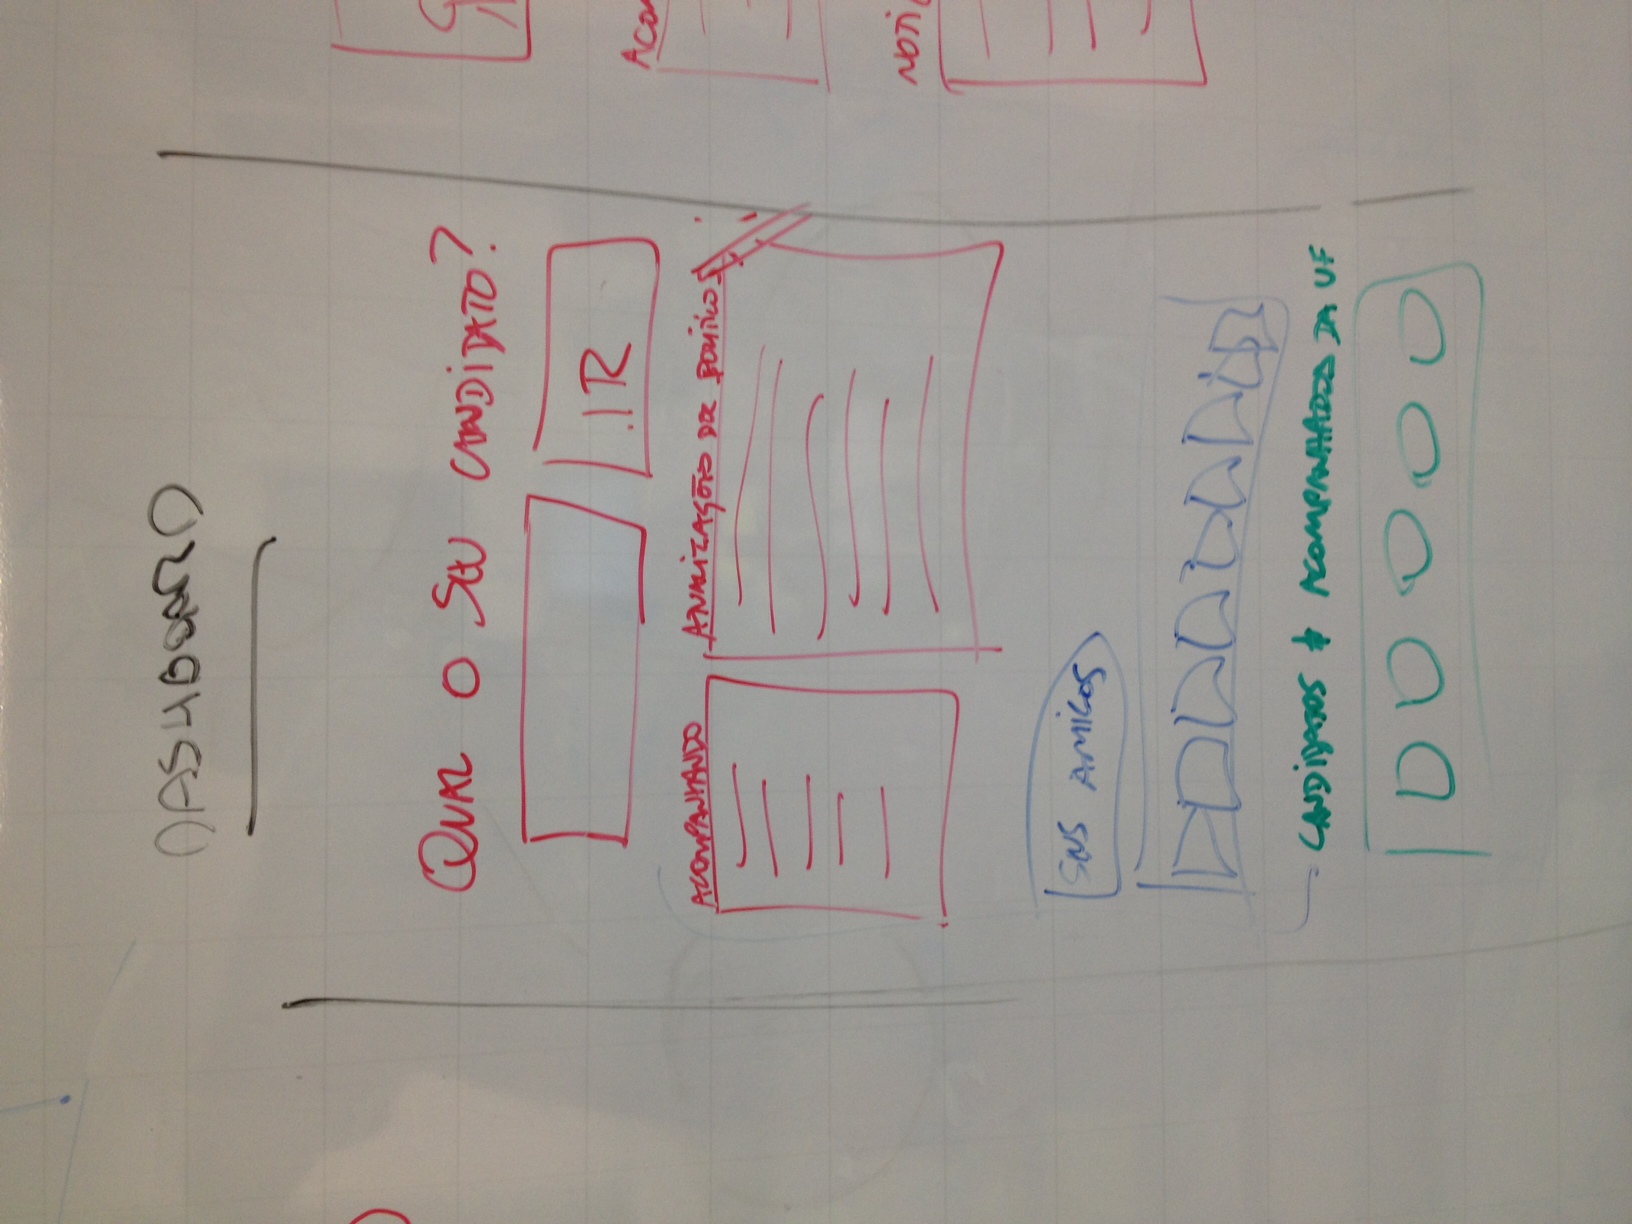 DASHBOARD
QUAL O SEU CANDIDATO?
.IR
ACOMPANHANDO
DOS POLÍTICOS
SEUS AMIGOS
CANDIDATOS + ACOMPANHADOS DA UF
ACOM
NOTIC